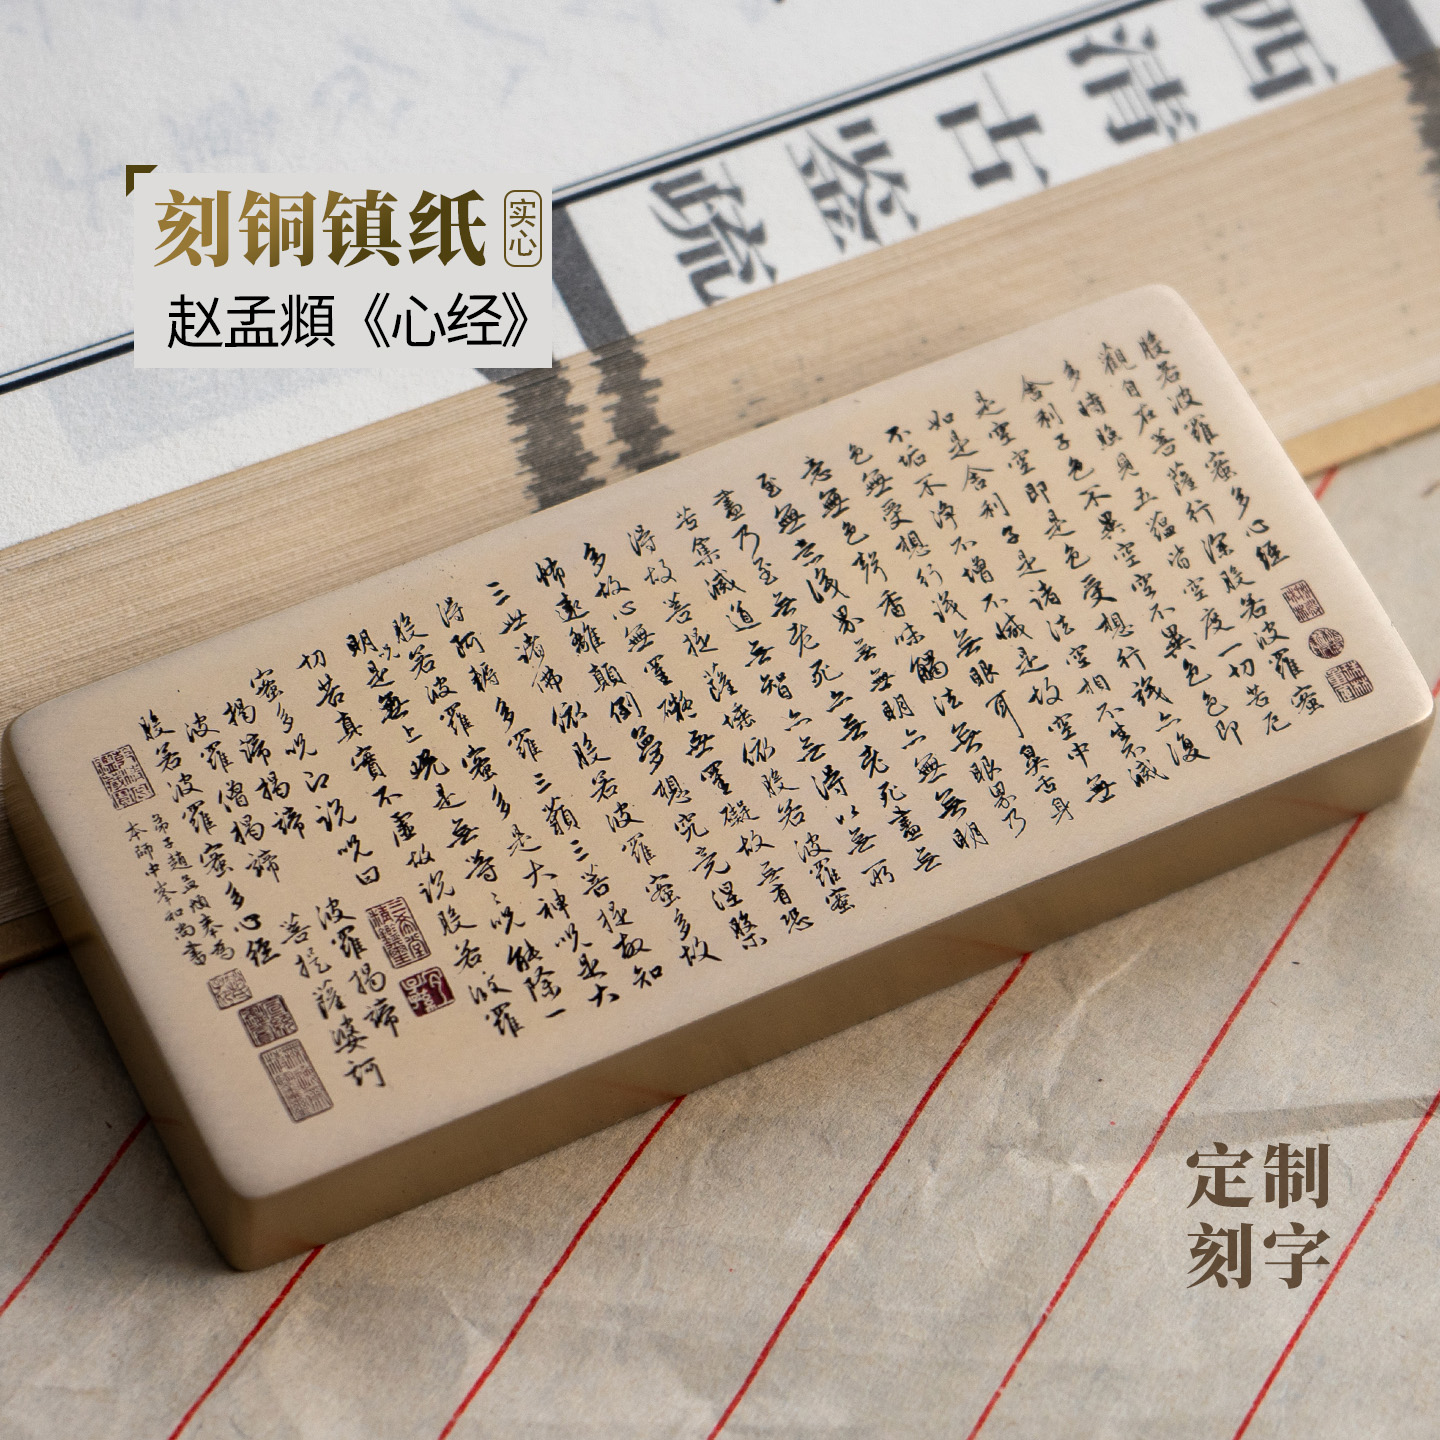 刻铜镇纸
实心
赵孟頫《心经》
西清古鉴疏
般若波羅蜜多心經
觀自在菩薩行深般若波羅蜜
多時照見五蘊皆空度一切苦厄
舍利子色不異空空不異色色即
是空空即是色受想行識亦復
如是舍利子是諸法空相不生不滅
不垢不淨不增不減是故空中無
色無受想行識無眼耳鼻舌身
意無色聲香味觸法無眼界乃
至無意識界無無明亦無無明
盡乃至無老死亦無老死盡無
苦集滅道無智亦無得以無所
得故菩提薩埵依般若波羅蜜
多故心無罣礙無罣礙故無有恐
怖遠離顛倒夢想究竟涅槃
三世諸佛依般若波羅蜜多故
得阿耨多羅三藐三菩提故知
般若波羅蜜多是大神呪是大
明呪是無上呪是無等等呪能除一
切苦真實不虛故說般若波羅
蜜多呪即說呪曰
揭諦揭諦 波羅揭諦
波羅僧揭諦 菩提薩婆訶
般若波羅蜜多心經
弟子趙孟頫奉為
本師中峯和尚書
定制
刻字